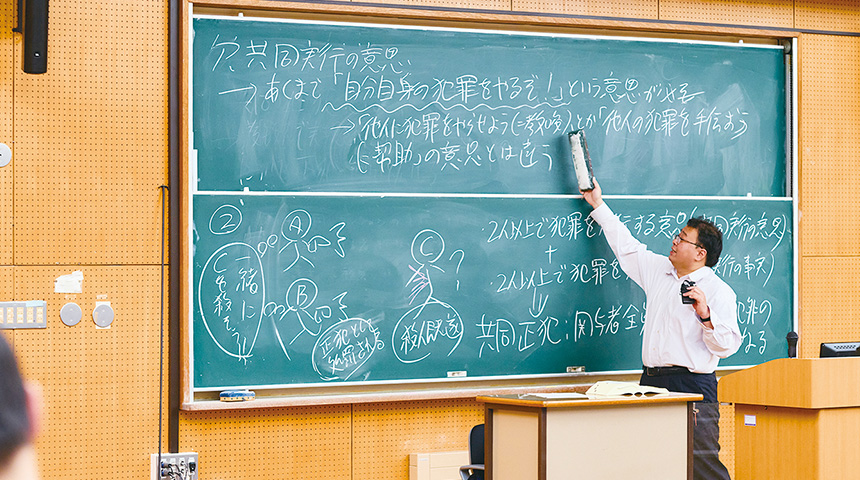 ア.共同実行の意思
→あくまで「自分自身の犯罪をやるぞ!」という意思が必要
→「他人に犯罪をやらせよう(=教唆)」とか「他人の犯罪を手伝おう
(=幇助)」の意思とは違う
②
一緒に
Cを殺そう
A
B
正犯として
処罰される
C
?
殺人既遂
・2人以上で犯罪を
する意思(
同実行の意思)
+
・2人以上で犯罪を
実行の事実)
⇓
共同正犯:関与者全
犯の
なる